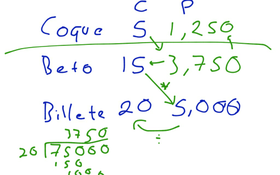 C P
Coque 5 1,250
Beto 15 3,750
Billete 20 5,000
÷
3750
20 75000
150